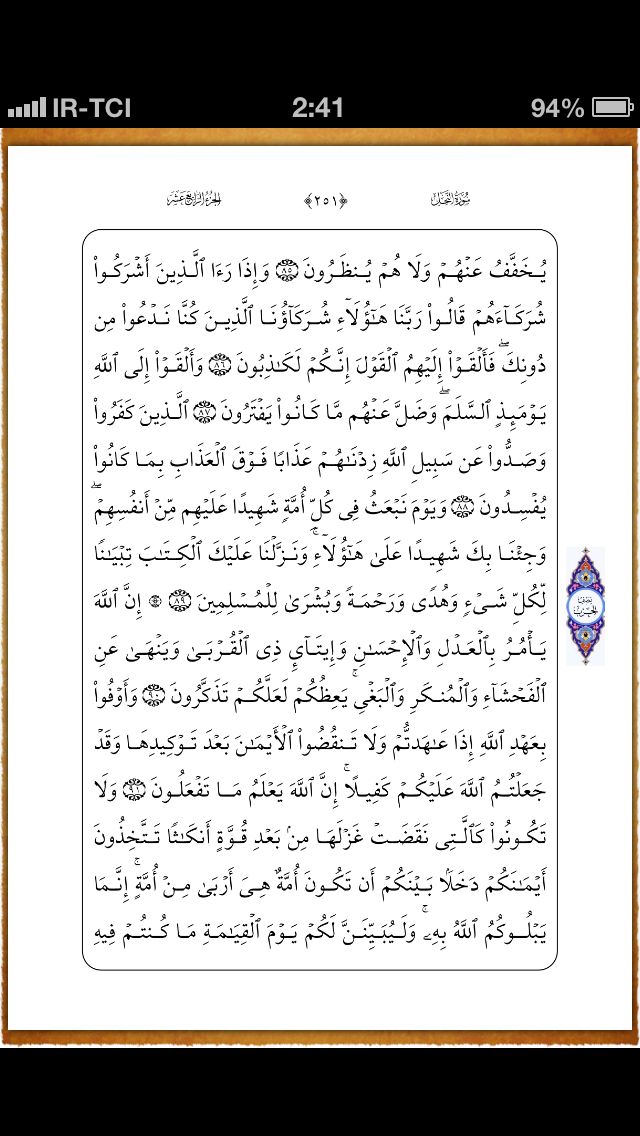 IR-TCI 2:41 94%
سُورَةُ النَّحْل ﴿٢٥١﴾ الجُزْءُ الرَّابِعَ عَشَرَ
يُخَفَّفُ عَنْهُمْ وَلَا هُمْ يُنظَرُونَ ٨٥ وَإِذَا رَءَا ٱلَّذِينَ أَشْرَكُوا۟
شُرَكَآءَهُمْ قَالُوا۟ رَبَّنَا هَٰٓؤُلَآءِ شُرَكَآؤُنَا ٱلَّذِينَ كُنَّا نَدْعُوا۟ مِن
دُونِكَ ۖ فَأَلْقَوْا۟ إِلَيْهِمُ ٱلْقَوْلَ إِنَّكُمْ لَكَٰذِبُونَ ٨٦ وَأَلْقَوْا۟ إِلَى ٱللَّهِ
يَوْمَئِذٍ ٱلسَّلَمَ ۖ وَضَلَّ عَنْهُم مَّا كَانُوا۟ يَفْتَرُونَ ٨٧ ٱلَّذِينَ كَفَرُوا۟
وَصَدُّوا۟ عَن سَبِيلِ ٱللَّهِ زِدْنَٰهُمْ عَذَابًا فَوْقَ ٱلْعَذَابِ بِمَا كَانُوا۟
يُفْسِدُونَ ٨٨ وَيَوْمَ نَبْعَثُ فِى كُلِّ أُمَّةٍ شَهِيدًا عَلَيْهِم مِّنْ أَنفُسِهِمْ ۖ
وَجِئْنَا بِكَ شَهِيدًا عَلَىٰ هَٰٓؤُلَآءِ ۚ وَنَزَّلْنَا عَلَيْكَ ٱلْكِتَٰبَ تِبْيَٰنًا
لِّكُلِّ شَىْءٍ وَهُدًى وَرَحْمَةً وَبُشْرَىٰ لِلْمُسْلِمِينَ ٨٩ ۞ إِنَّ ٱللَّهَ
نصف الحزب
يَأْمُرُ بِٱلْعَدْلِ وَٱلْإِحْسَٰنِ وَإِيتَآئِ ذِى ٱلْقُرْبَىٰ وَيَنْهَىٰ عَنِ
ٱلْفَحْشَآءِ وَٱلْمُنكَرِ وَٱلْبَغْىِ ۚ يَعِظُكُمْ لَعَلَّكُمْ تَذَكَّرُونَ ٩٠ وَأَوْفُوا۟
بِعَهْدِ ٱللَّهِ إِذَا عَٰهَدتُّمْ وَلَا تَنقُضُوا۟ ٱلْأَيْمَٰنَ بَعْدَ تَوْكِيدِهَا وَقَدْ
جَعَلْتُمُ ٱللَّهَ عَلَيْكُمْ كَفِيلًا ۚ إِنَّ ٱللَّهَ يَعْلَمُ مَا تَفْعَلُونَ ٩١ وَلَا
تَكُونُوا۟ كَٱلَّتِى نَقَضَتْ غَزْلَهَا مِنۢ بَعْدِ قُوَّةٍ أَنكَٰثًا تَتَّخِذُونَ
أَيْمَٰنَكُمْ دَخَلًۢا بَيْنَكُمْ أَن تَكُونَ أُمَّةٌ هِىَ أَرْبَىٰ مِنْ أُمَّةٍ ۚ إِنَّمَا
يَبْلُوكُمُ ٱللَّهُ بِهِۦ ۚ وَلَيُبَيِّنَنَّ لَكُمْ يَوْمَ ٱلْقِيَٰمَةِ مَا كُنتُمْ فِيهِ